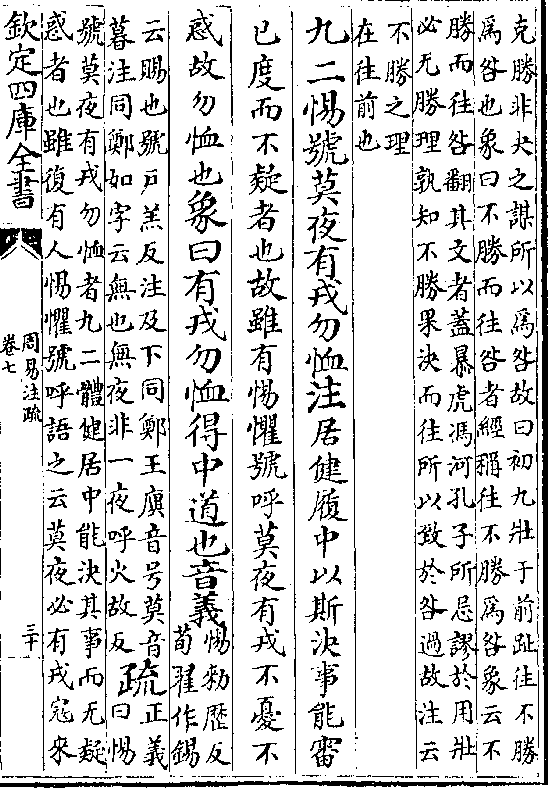 克勝非夬之謀所以爲咎故曰初九壯于前趾往不勝
爲咎也象曰不勝而往咎者經稱往不勝爲咎象云不
勝而往咎翻其文者蓋暴虎馮河孔子所忌謬於用壯
必无勝理孰知不勝果決而往所以致於咎過故注云
不勝之理
在往前也
九二惕號莫夜有戎勿恤注居健履中以斯決事能審
已度而不疑者也故雖有惕懼號呼莫夜有戎不憂不
惑故勿恤也象曰有戎勿恤得中道也音義惕勑歷反
荀翟作錫
云賜也號戸羔反注及下同鄭王廙音号莫音
暮注同鄭如字云無也無夜非一夜呼火故反
疏正義
曰惕
號莫夜有戎勿恤者九二體健居中能決其事而无疑
惑者也雖復有人惕懼號呼語之云莫夜必有戎寇來
欽定四庫全書
周易注疏
卷七
三十